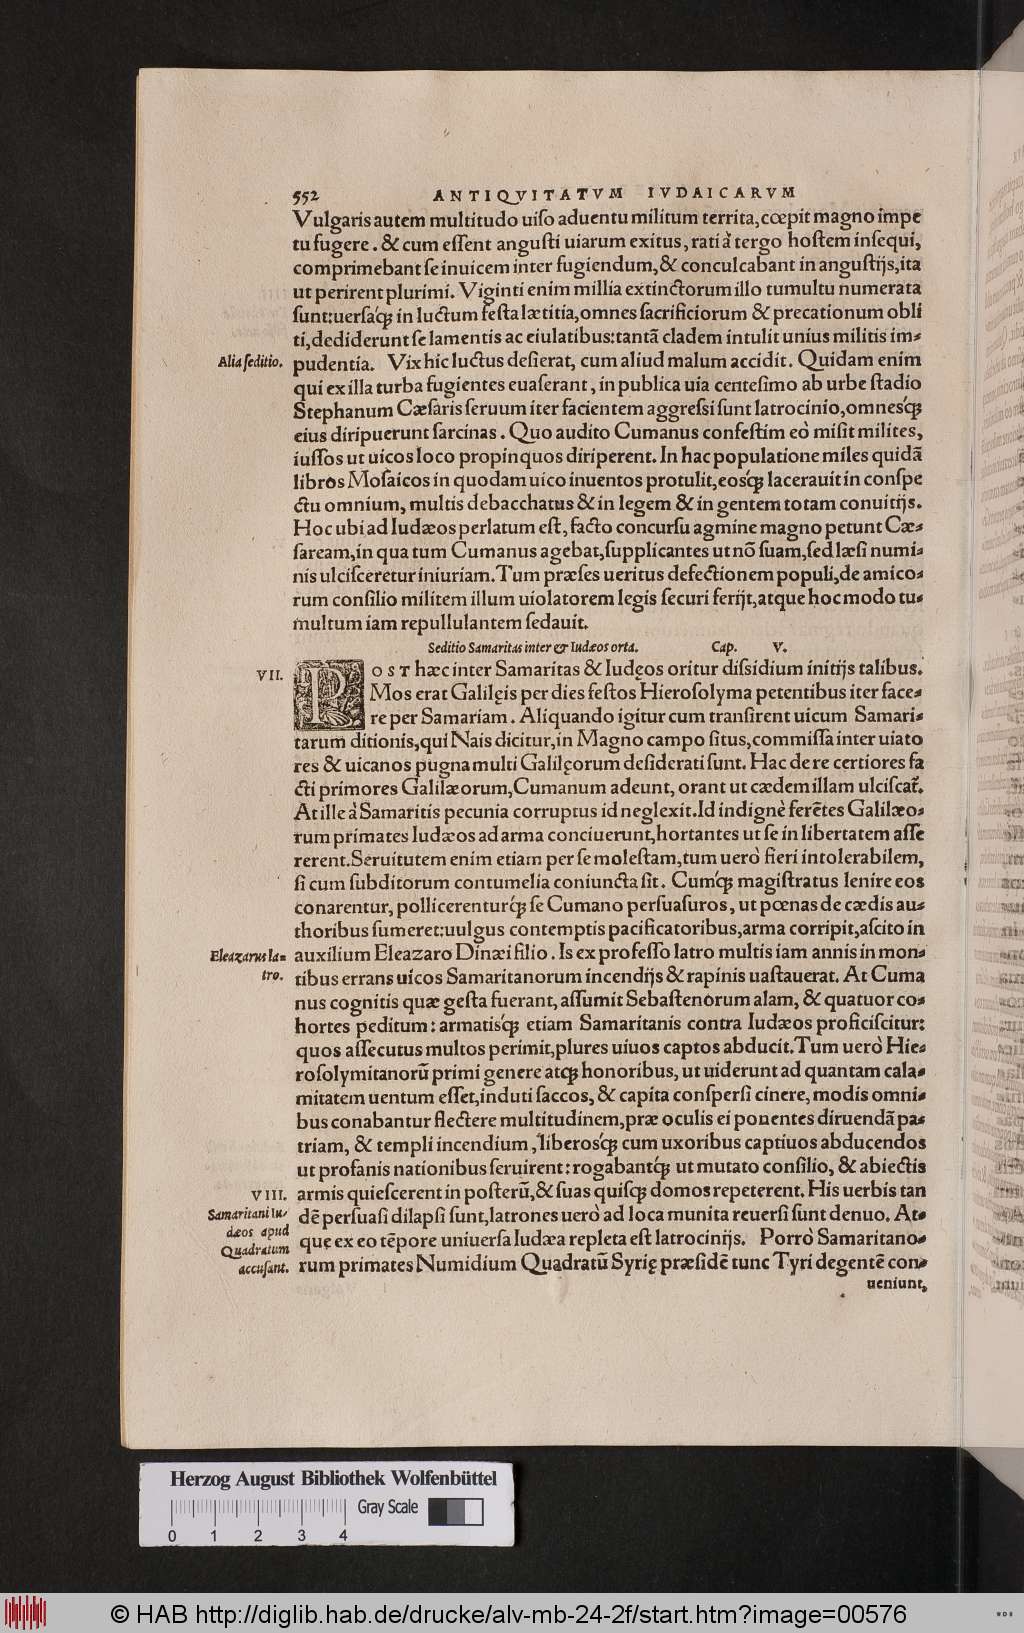 552 ANTIQVITATVM IVDAICARVM
Vulgaris autem multitudo uiſo aduentu militum territa, cœpit magno impe
tu fugere. & cum eſſent anguſti uiarum exitus, rati à tergo hoſtem inſequi,
comprimebant ſe inuicem inter fugiendum, & conculcabant in anguſtijs, ita
ut perirent plurimi. Viginti enim millia extinctorum illo tumultu numerata
ſunt: uerſaq́; in luctum feſta lætitia, omnes ſacrificiorum & precationum obli
ti, dediderunt ſe lamentis ac eiulatibus: tantã cladem intulit unius militis im-
Alia ſeditio. pudentia. Vix hic luctus deſierat, cum aliud malum accidit. Quidam enim
qui ex illa turba fugientes euaſerant, in publica uia centeſimo ab urbe ſtadio
Stephanum Cæſaris ſeruum iter facientem aggreſſi ſunt latrocinio, omnesq́;
eius diripuerunt ſarcinas. Quo audito Cumanus confeſtim eò miſit milites,
iuſſos ut uicos loco propinquos diriperent. In hac populatione miles quidã
libros Moſaicos in quodam uico inuentos protulit, eosq́; lacerauit in conſpe
ctu omnium, multis debacchatus & in legem & in gentem totam conuitijs.
Hoc ubi ad Iudæos perlatum eſt, facto concurſu agmine magno petunt Cæ-
ſaream, in qua tum Cumanus agebat, ſupplicantes ut nõ ſuam, ſed læſi numi-
nis ulciſceretur iniuriam. Tum præſes ueritus defectionem populi, de amico-
rum conſilio militem illum uiolatorem legis ſecuri ferijt, atque hoc modo tu-
multum iam repullulantem ſedauit.
Seditio Samaritas inter & Iudæos orta. Cap. V.
VII. POST hæc inter Samaritas & Iudęos oritur diſsidium initijs talibus.
Mos erat Galilęis per dies feſtos Hieroſolyma petentibus iter face-
re per Samariam. Aliquando igitur cum tranſirent uicum Samari-
tarum ditionis, qui Nais dicitur, in Magno campo ſitus, commiſſa inter uiato
res & uicanos pugna multi Galilęorum deſiderati ſunt. Hac de re certiores fa
cti primores Galilæorum, Cumanum adeunt, orant ut cædem illam ulciſcat̃.
At ille à Samaritis pecunia corruptus id neglexit. Id indignè ferẽtes Galilæo-
rum primates Iudæos ad arma conciuerunt, hortantes ut ſe in libertatem aſſe
rerent. Seruitutem enim etiam per ſe moleſtam, tum uerò fieri intolerabilem,
ſi cum ſubditorum contumelia coniuncta ſit. Cumq́; magiſtratus lenire eos
conarentur, pollicerenturq́; ſe Cumano perſuaſuros, ut pœnas de cædis au-
thoribus ſumeret: uulgus contemptis pacificatoribus, arma corripit, aſcito in
Eleazarus la- auxilium Eleazaro Dinæi filio. Is ex profeſſo latro multis iam annis in mon-
tro. tibus errans uicos Samaritanorum incendijs & rapinis uaſtauerat. At Cuma
nus cognitis quæ geſta fuerant, aſſumit Sebaſtenorum alam, & quatuor co-
hortes peditum: armatisq́; etiam Samaritanis contra Iudæos proficiſcitur:
quos aſſecutus multos perimit, plures uiuos captos abducit. Tum uerò Hie-
roſolymitanorũ primi genere atq; honoribus, ut uiderunt ad quantam cala-
mitatem uentum eſſet, induti ſaccos, & capita conſperſi cinere, modis omni-
bus conabantur flectere multitudinem, præ oculis ei ponentes diruendã pa-
triam, & templi incendium, liberosq́; cum uxoribus captiuos abducendos
ut profanis nationibus ſeruirent: rogabantq́; ut mutato conſilio, & abiectis
VIII. armis quieſcerent in poſterũ, & ſuas quiſq; domos repeterent. His uerbis tan
Samaritani Iu- dẽ perſuaſi dilapſi ſunt, latrones uerò ad loca munita reuerſi ſunt denuo. At-
dæos apud
Quadratum quę ex eo tẽpore uniuerſa Iudæa repleta eſt latrocinijs. Porrò Samaritano-
accuſant. rum primates Numidium Quadratũ Syrię præſidẽ tunc Tyri degentẽ con-
ueniunt,
Herzog August Bibliothek Wolfenbüttel
Gray Scale
0 1 2 3 4
© HAB http://diglib.hab.de/drucke/alv-mb-24-2f/start.htm?image=00576